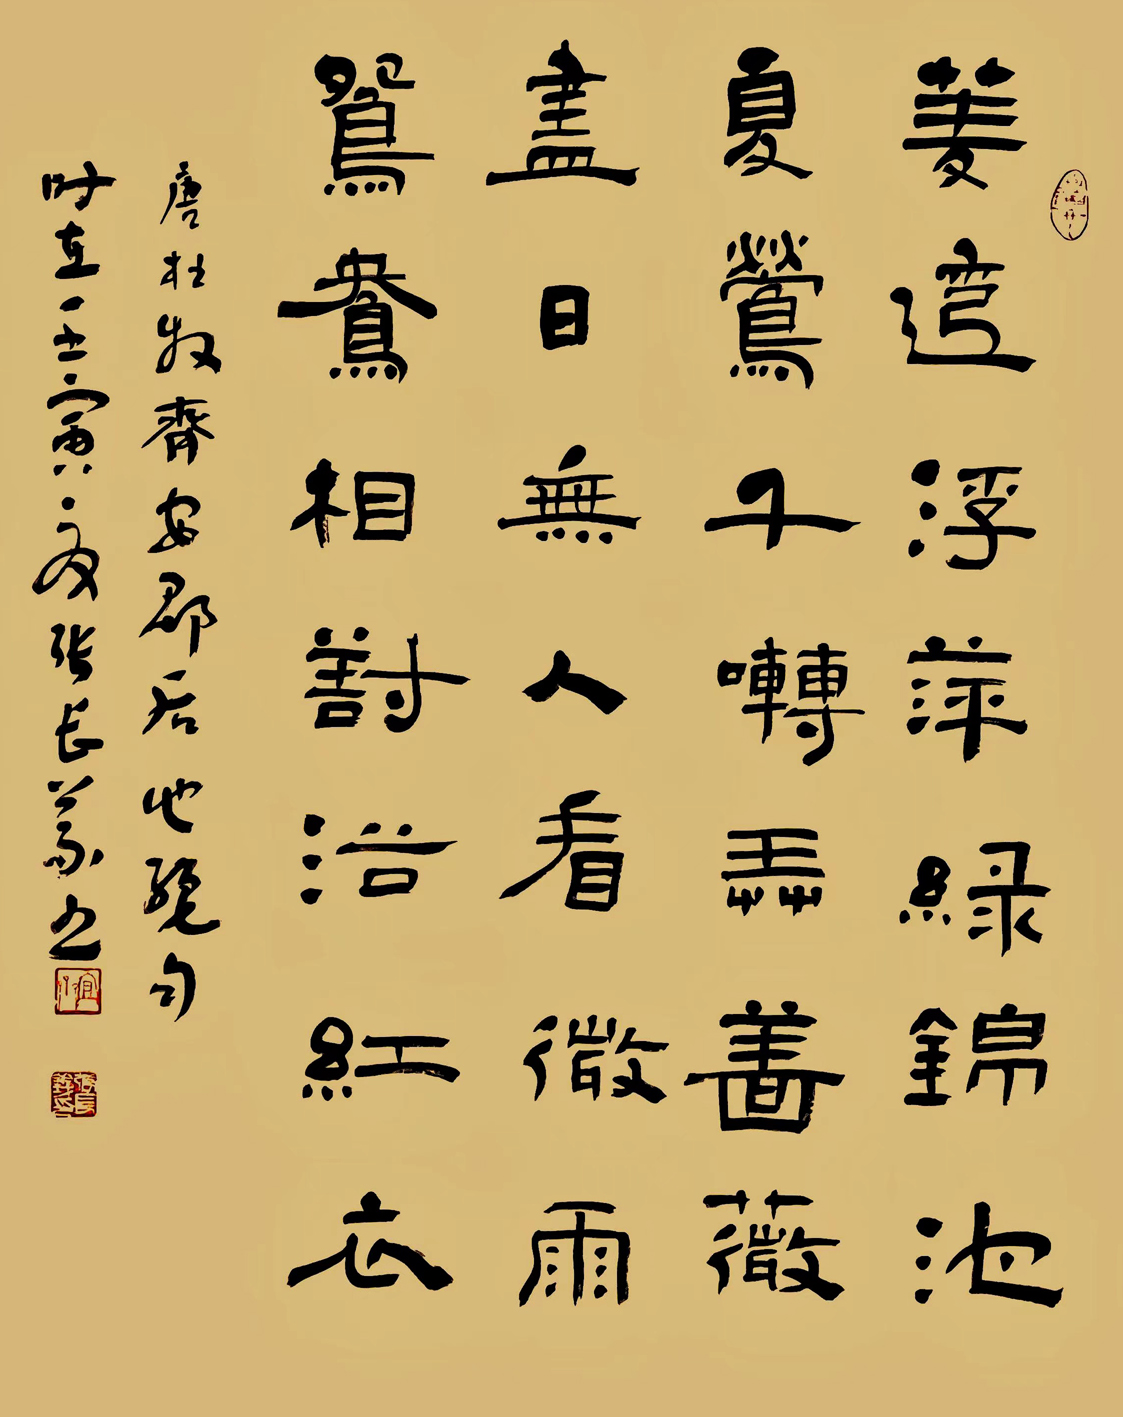 菱透浮萍綠錦池
夏鶯千囀弄薔薇
盡日無人看微雨
鴛鴦相對浴紅衣
唐杜牧齊安郡后池絕句
时在壬寅夏张长義书